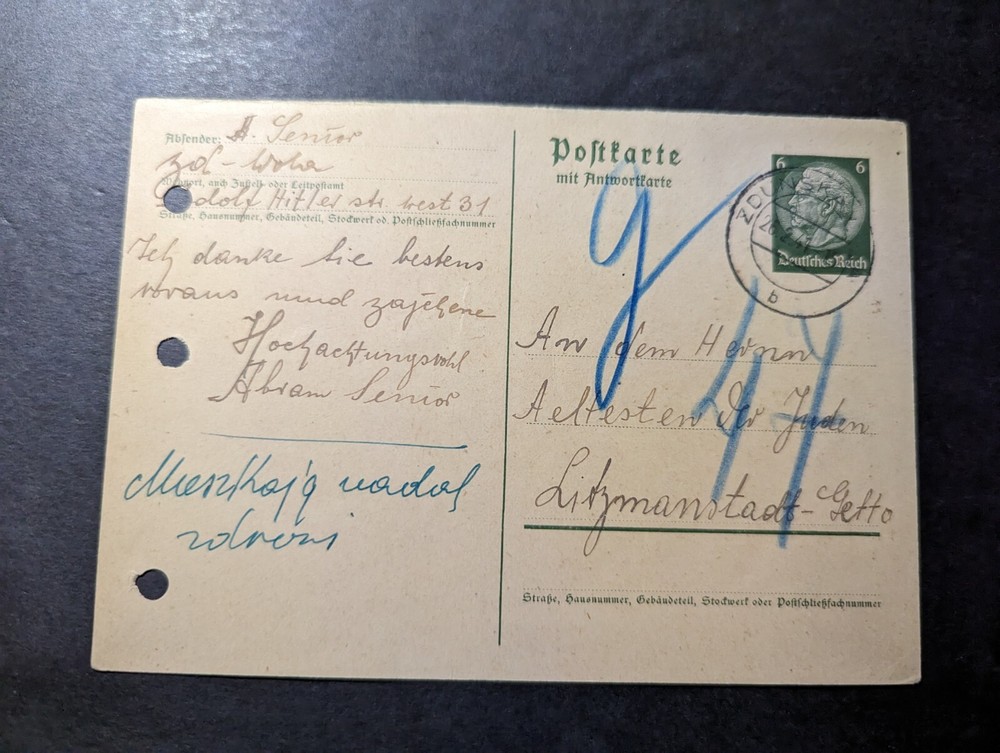 Absender: A. Senior
Zd-Wola
Wohnort, auch Zustell- oder Leitpostamt
Adolf Hitler str west 31
Straße, Hausnummer, Gebäudeteil, Stockwerk od. Postschließfachnummer
Ich danke Sie bestens
voraus und zajchene
Hochachtungsvohl
Abram Senior
Mieszkają nadal
zdrowi
Postkarte
mit Antwortkarte
6 6
Deutsches Reich
ZDUNSKA
b
g
44
An dem Herrnn
Aeltesten der Juden
Litzmanstadt-Getto
Straße, Hausnummer, Gebäudeteil, Stockwerk oder Postschließfachnummer